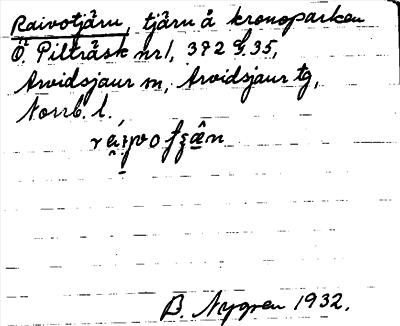 Raivotjärn, tjärn å kronoparken
Ö. Pilträsk nr 1, 372 G. 35,
Arvidsjaur sn, Arvidsjaur tg,
Norrb. l.
B. Nygren 1932.